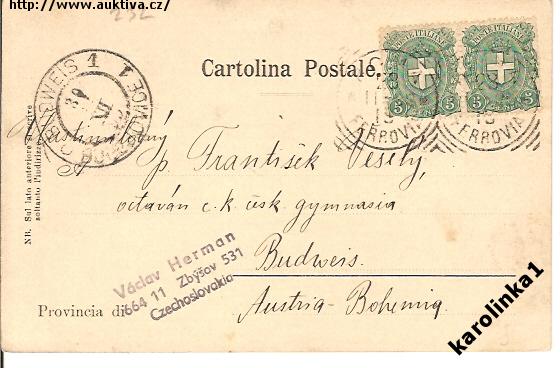 http://www.auktiva.cz/
232
Cartolina Postale.
POSTE ITALIANE
POSTE ITALIANE
5 5
5 5
FERROVIA
FERROVIA
BUDWEIS 1
NB. Sul lato anteriore scrivere
soltanto l'indirizzo
p. František Veselý,
octaván c.k. česk. gymnasia
Budweis.
Provincia di
Austria-Bohemia
Václav Herman
664 11 Zbýšov 531
Czechoslovakia
karolinka1